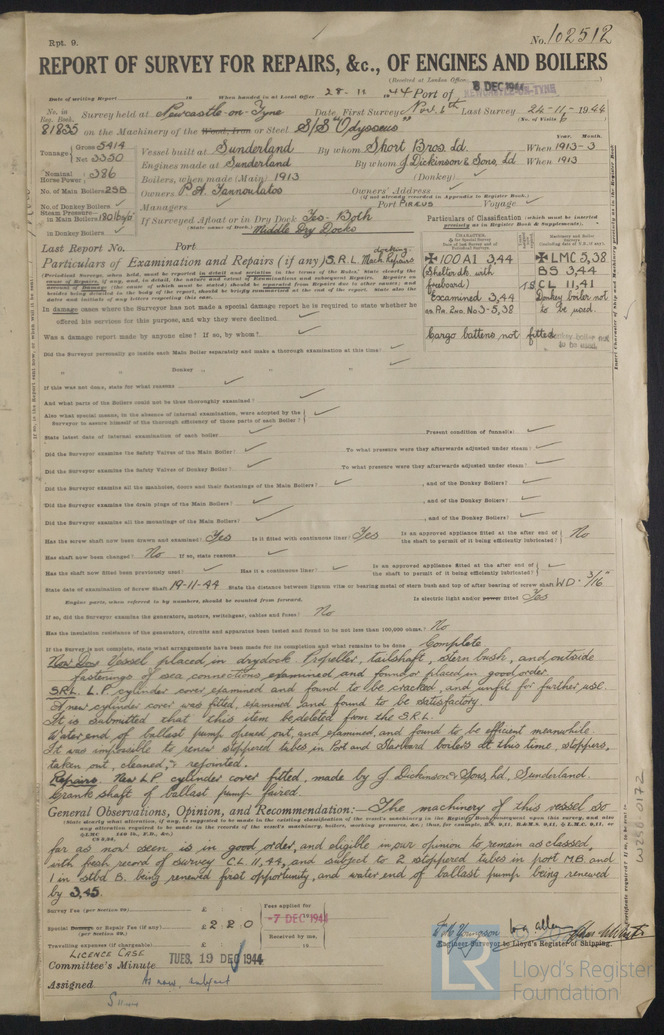 Rpt. 9.
No. 102512
REPORT OF SURVEY FOR REPAIRS, &c., OF ENGINES AND BOILERS
(Received at London Office
8 DEC 1944
Date of writing Report 19 When handed in at Local Office 28-11 1944 Port of NEWCASTLE-ON-TYNE
No. in Reg. Book. Survey held at Newcastle-on-Tyne Date, First Survey Nov. 6th Last Survey 24-11-1944
(No. of Visits 6)
81835 on the Machinery of the Wood, Iron or Steel S/S "Odysseus"
Tonnage Gross 5414 Net 3350
Vessel built at Sunderland By whom Short Bros. Ld. When 1913-3
Year. Month.
Engines made at Sunderland By whom J Dickinson & Sons, Ld When 1913
Nominal Horse Power 386
Boilers, when made (Main) 1913 (Donkey)
No. of Main Boilers 2SB
Owners P. A. Yannoulatos Owners' Address
(if not already recorded in Appendix to Register Book.)
No. of Donkey Boilers
Managers Port Piræus Voyage
Steam Pressure in Main Boilers 180 lb/sq"
in Donkey Boilers
If Surveyed Afloat or in Dry Dock Yes - Both
(State name of Dock.) Middle Dry Docks
Particulars of Classification (which must be inserted precisely as in Register Book & Supplements).
Last Report No. Port
Particulars of Examination and Repairs (if any) S.R.L. docking. Mach Repairs
✠ 100A1 3,44
(Shelter dk with freeboard)
Examined 3,44
ss. No. 2nd No 3-5,38
✠ LMC 5,38
BS 3,44
CL 11,41
Donkey boiler not to be used.
Cargo battens not fitted
Donkey boiler not to be used.
In damage cases where the Surveyor has not made a special damage report he is required to state whether he
offered his services for this purpose, and why they were declined
Was a damage report made by anyone else? If so, by whom?
Did the Surveyor personally go inside each Main Boiler separately and make a thorough examination at this time?
" " Donkey " " "
If this was not done, state for what reasons
And what parts of the Boilers could not be thus thoroughly examined?
Also what special means, in the absence of internal examination, were adopted by the
Surveyor to assure himself of the thorough efficiency of those parts of each Boiler?
State latest date of internal examination of each boiler Present condition of funnel(s)
Did the Surveyor examine the Safety Valves of the Main Boiler? To what pressure were they afterwards adjusted under steam?
Did the Surveyor examine the Safety Valves of Donkey Boiler? To what pressure were they afterwards adjusted under steam?
Did the Surveyor examine all the manholes, doors and their fastenings of the Main Boilers?, and of the Donkey Boilers?
Did the Surveyor examine the drain plugs of the Main Boilers?, and of the Donkey Boilers?
Did the Surveyor examine all the mountings of the Main Boilers?, and of the Donkey Boilers?
Has the screw shaft now been drawn and examined? Yes Is it fitted with continuous liner? Yes Is an approved appliance fitted at the after end of the shaft to permit of it being efficiently lubricated? No
Has shaft now been changed? No If so, state reasons
Has the shaft now fitted been previously used? Has it a continuous liner? Is an approved appliance fitted at the after end of the shaft to permit of it being efficiently lubricated?
State date of examination of Screw Shaft 19-11-44 State the distance between lignum vitæ or bearing metal of stern bush and top of after bearing of screw shaft WD - 3/16"
Engine parts, when referred to by numbers, should be counted from forward. Is electric light and/or power fitted Yes
If so, did the Surveyor examine the generators, motors, switchgear, cables and fuses? No
Has the insulation resistance of the generators, circuits and apparatus been tested and found to be not less than 100,000 ohms? No
If the Survey is not complete, state what arrangements have been made for its completion and what remains to be done Complete
Now Done Vessel placed in drydock. Propeller, tailshaft, stern bush, and outside
fastenings of sea connections examined and found or placed in good order.
SRL. L.P. cylinder cover examined and found to be cracked, and unfit for further use.
A new cylinder cover was fitted, examined and found to be satisfactory.
It is submitted that this item be deleted from the S.R.L.
Water end of ballast pump opened out, and examined, and found to be efficient meanwhile.
It was impossible to renew stoppered tubes in Port and Starboard boilers at this time, stoppers,
taken out, cleaned, & refitted.
Repairs. New LP cylinder cover fitted, made by J Dickinson & Sons, Ld, Sunderland.
Crank shaft of ballast pump faired.
General Observations, Opinion, and Recommendation:— The machinery of this vessel so
far as now seen is in good order, and eligible in our opinion to remain as classed,
with fresh record of survey CL 11,44, and subject to 2 stoppered tubes in port M.B. and
1 in stbd B. being renewed first opportunity, and water end of ballast pump being renewed
by 3,45
Survey Fee (per Section 29.) £
Fees applied for
-7 DEC 1944
Special Damage or Repair Fee (if any) £ 2 2 0
(per Section 29.)
Received by me,
Travelling expenses (if chargeable) £
Engineer Surveyor to Lloyd's Register of Shipping.
LICENCE CASE
Committee's Minute TUES. 19 DEC 1944
Assigned As now, subject
W258-0172
LR
Lloyd's Register
Foundation